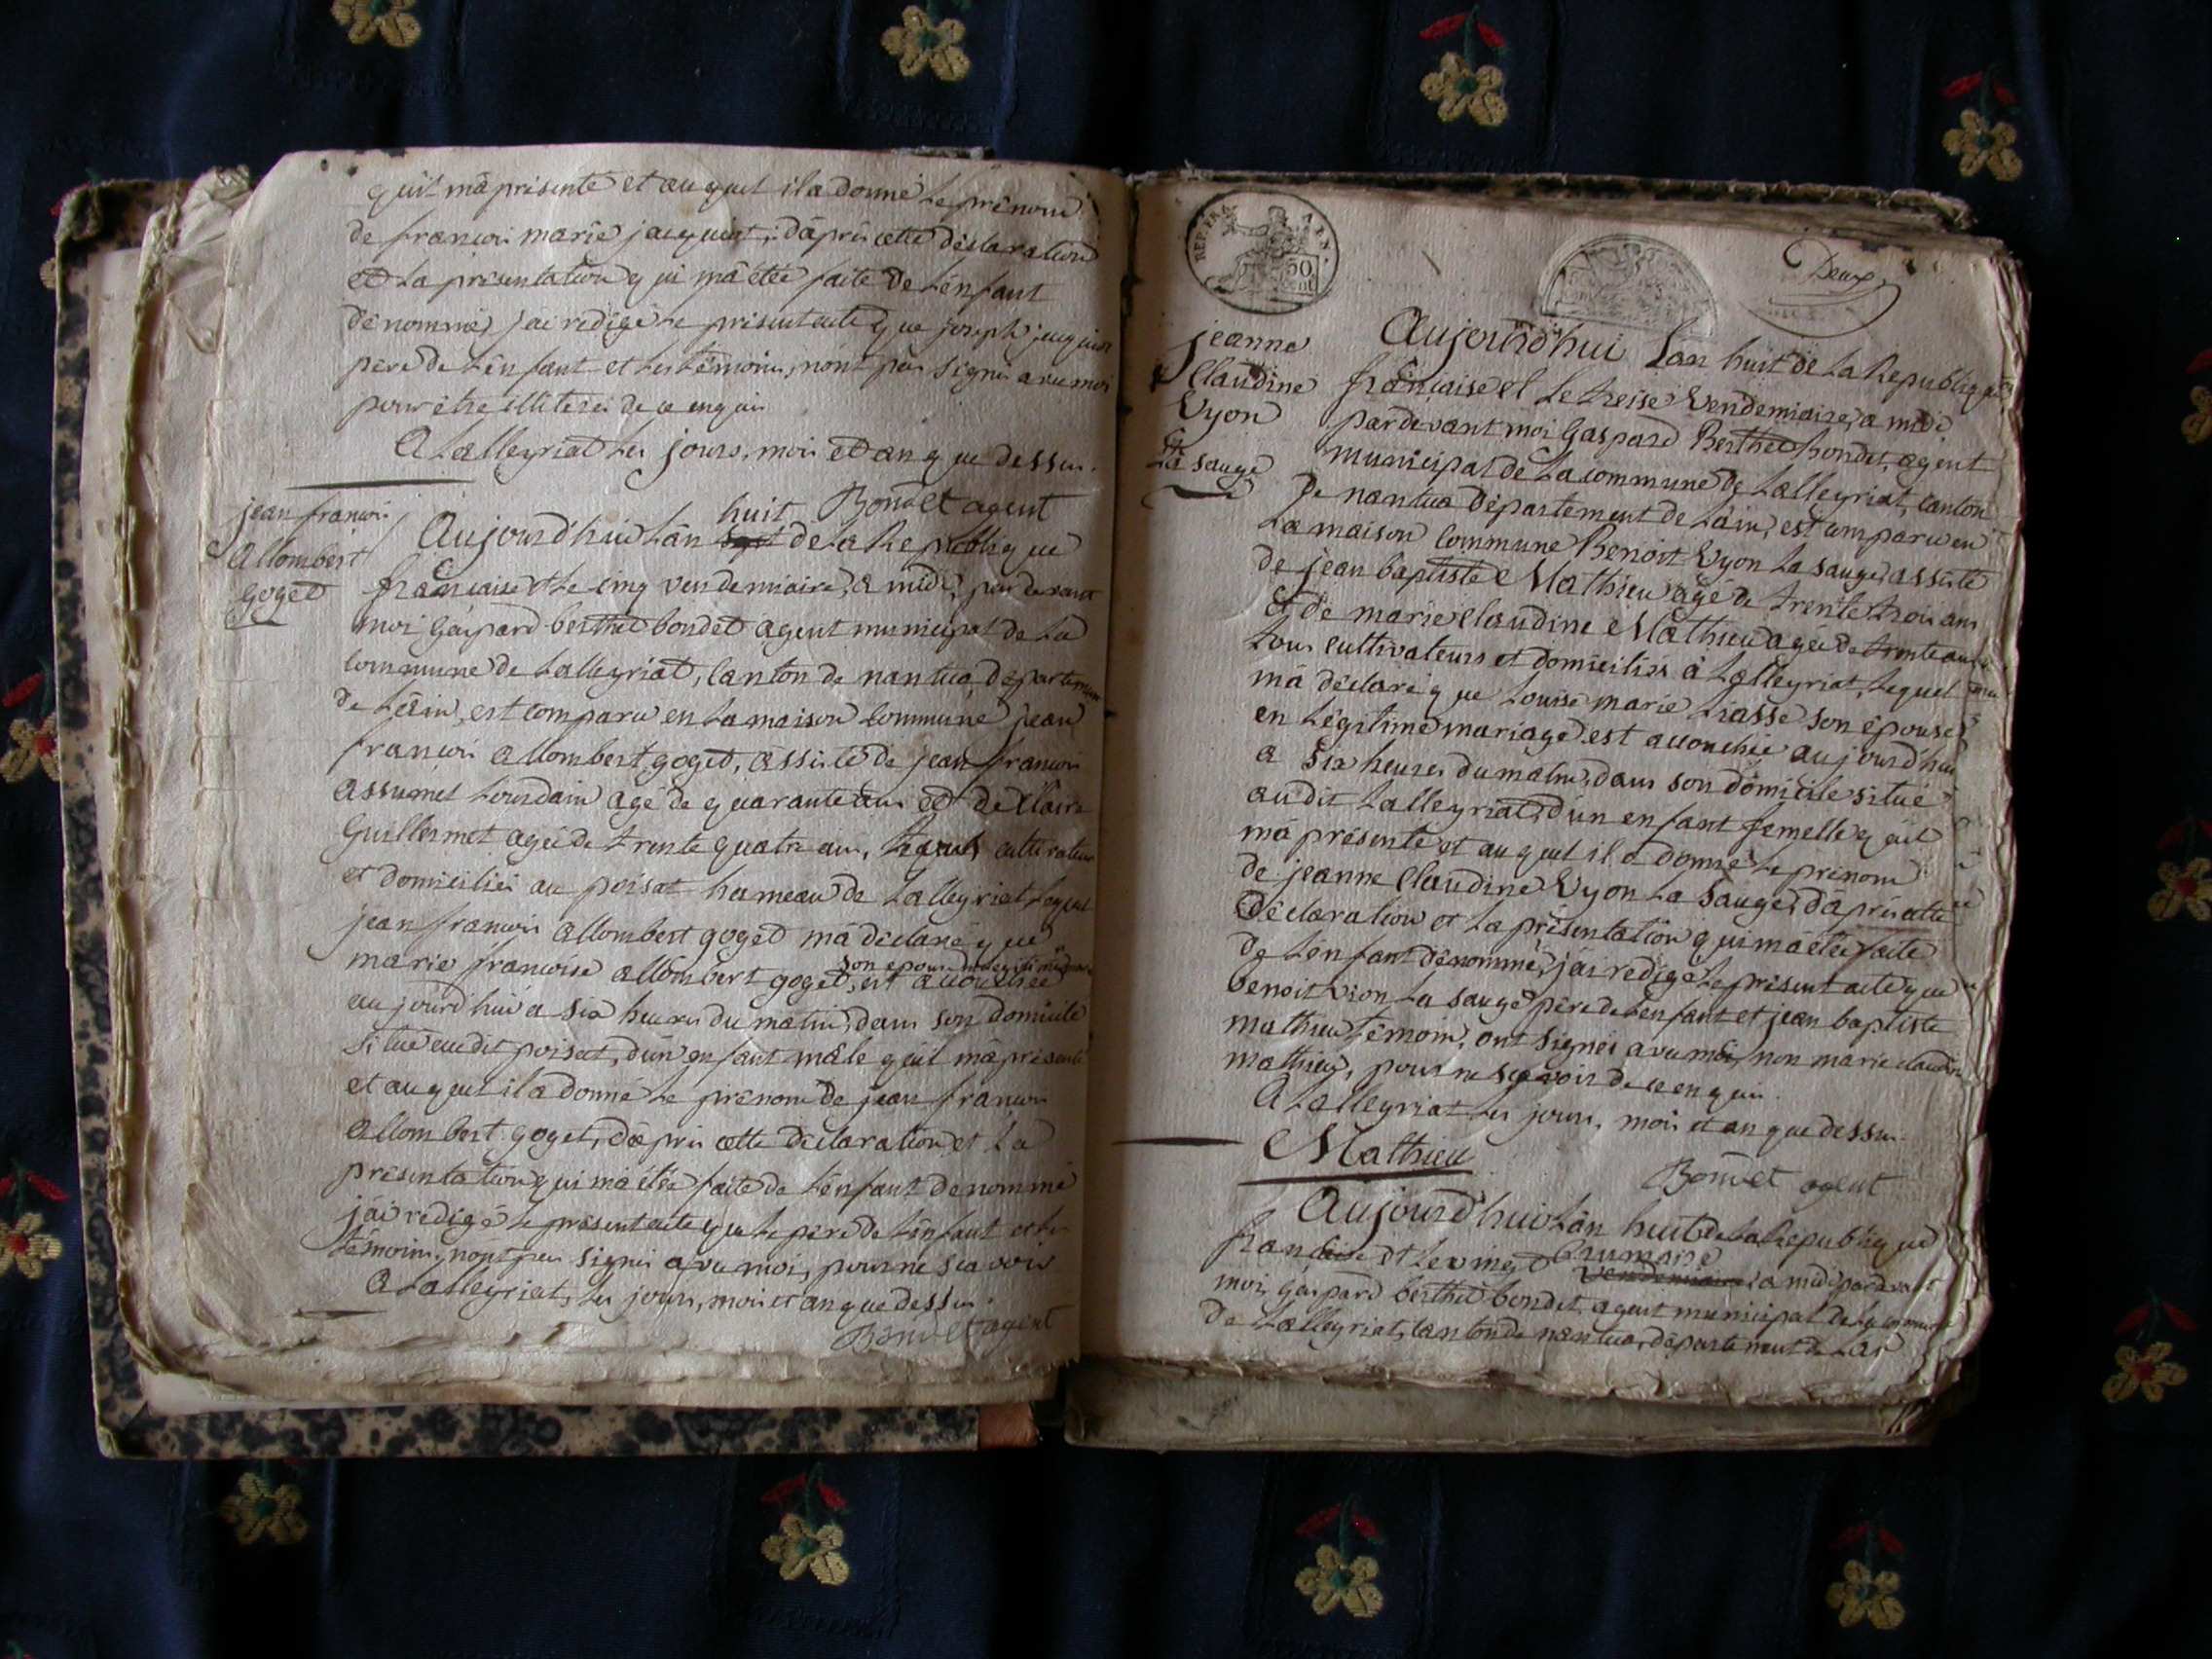 qu'il m'a présenté et auquel il a donné le prénom
de francois marie jacquinot, d'après cette déclaration
et la présentation qui m'a étée faite de l'enfant
dénommé, j'ai redigé le présent acte que joseph jacquinot
pere de l'enfant et les témoins, n'ont pas signé avec moi
pour être illiterés de ce enquis
A Lalleyriat les jours, mois et an que dessus.
Bondet agent
jean francois
allombert
goget
huit
Aujourd'hui l'an sept de la Republique
francaise et le cinq vendemiaire, a midi, par devant
moi gaspard berthet bondet agent municipal de la
commune de Lalleyriat, canton de nantua, departement
de L'ain, est comparu en la maison commune jean
francois allombert goget, assisté de jean francois
assumel Lourdain agé de quarante ans et de Claire
Guillermet agée de trente quatre ans, cultivateurs
et domiciliés au poisat hameau de Lalleyriat lequel
jean francois allombert goget m'a déclaré que
son epouse en legitime mariage
marie francoise allombert goget, est accouchée
aujourd'hui a six heures du matin, dans son domicile
situé audit poisat, d'un enfant mâle qu'il m'a présenté
et auquel il a donné le prénom de jean francois
allombert goget, d'après cette déclaration et la
présentation qui m'a étée faite de l'enfant denommé
j'ai redigé le présent acte que le père de l'enfant et les
témoins, n'ont pas signé avec moi, pour ne scavoir
A Lalleyriat, les jours, mois et an que dessus.
Bondet agent
REP. FRA
50
Deux
jeanne
Claudine
Vyon
La sauge
Aujourd'hui L'an huit de la Republique
francaise et le treise Vendemiaire, a midi
pardevant moi Gaspard Berthet Bondet, agent
municipal de la commune de Lalleyriat, canton
de nantua département de L'ain, est comparu en
la maison commune Benoit Vyon La sauge, assisté
de jean baptiste Mathieu agé de trente trois ans
et de marie claudine Mathieu agée de trente ans
tous cultivateurs et domiciliés à Lalleyriat, lequel
m'a déclaré que Louise marie Liasse son épouse
en légitime mariage est accouchée aujourd'hui
a six heures du matin, dans son domicile situé
audit Lalleyriat, d'un enfant femelle qu'il
m'a présenté et auquel il a donné le prénom
de jeanne claudine Vyon La Sauge, d'après cette
déclaration et la présentation qui m'a étée faite
de l'enfant dénommé, j'ai redigé le présent acte que
benoit vion La sauge père de l'enfant et jean baptiste
mathieu témoin, ont signés avec moi, non marie claudine
mathieu, pour ne sçavoir de ce enquis.
A Lalleyriat les jours, mois et an que dessus.
Mathieu
Bondet agent
Aujourd'hui L'an huit de la Republique
brumaire
francaise et le vingt vendemiaire a midi pardevant
moi, gaspard berthet bondet, agent municipal de la commune
de Lalleyriat, canton de nantua, département de L'ain